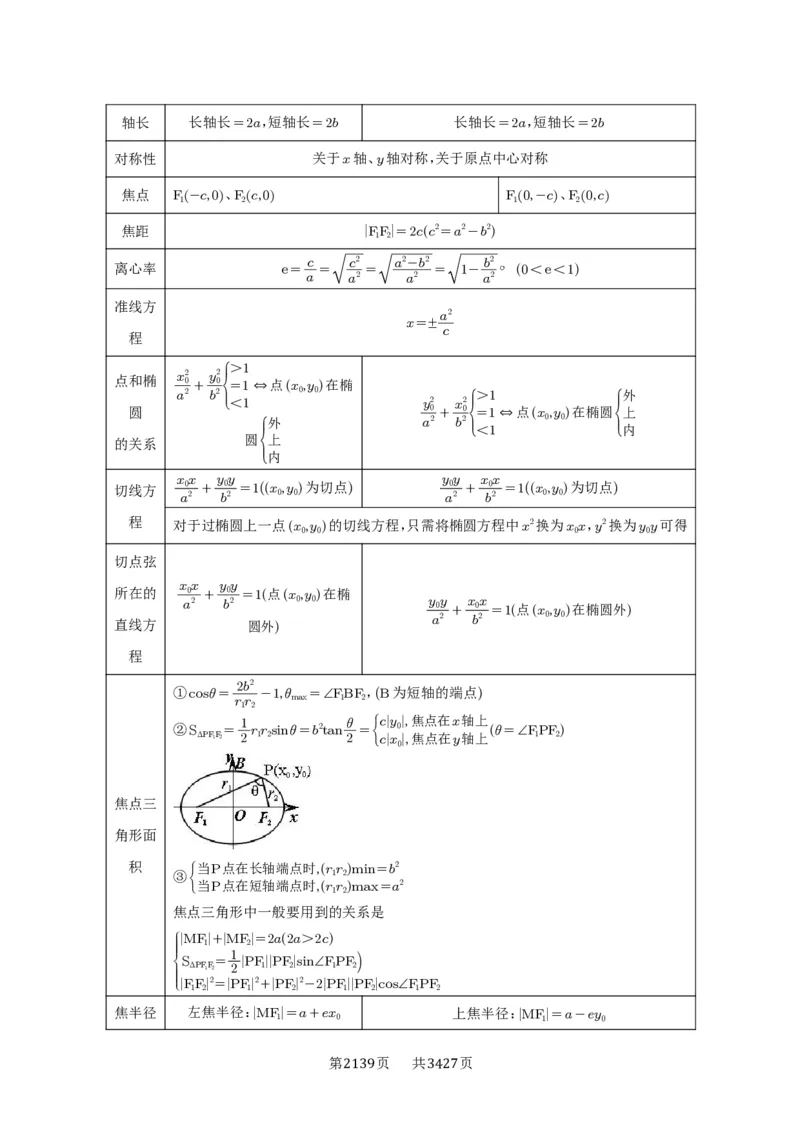 轴长 长轴长=2a,短轴长=2b 长轴长=2a,短轴长=2b
对称性 关于x轴、y轴对称,关于原点中心对称
焦点 F₁(−c,0)、F₂(c,0) F₁(0,−c)、F₂(0,c)
焦距 |F₁F₂|=2c(c²=a²−b²)
离心率 e=c/a=√(c²/a²)=√((a²−b²)/a²)=√(1−b²/a²)。(0<e<1)
准线方
程
x=±a²/c
点和椭
圆
的关系
x₀²/a²+y₀²/b²{>1 =1 <1 ⇔点(x₀,y₀)在椭
圆{外 上 内
y₀²/a²+x₀²/b²{>1 =1 <1 ⇔点(x₀,y₀)在椭圆{外 上 内
切线方
程
x₀x/a²+y₀y/b²=1((x₀,y₀)为切点) y₀y/a²+x₀x/b²=1((x₀,y₀)为切点)
对于过椭圆上一点(x₀,y₀)的切线方程,只需将椭圆方程中x²换为x₀x,y²换为y₀y可得
切点弦
所在的
直线方
程
x₀x/a²+y₀y/b²=1(点(x₀,y₀)在椭
圆外)
y₀y/a²+x₀x/b²=1(点(x₀,y₀)在椭圆外)
焦点三
角形面
积
①cosθ=2b²/(r₁r₂)−1,θmax=∠F₁BF₂,(B为短轴的端点)
②S△PF₁F₂=1/2 r₁r₂sinθ=b²tan θ/2={c|y₀|,焦点在x轴上 c|x₀|,焦点在y轴上 (θ=∠F₁PF₂)
y B
P(x₀,y₀)
r₁ θ r₂
F₁ O F₂ x
③{当P点在长轴端点时,(r₁r₂)min=b²
当P点在短轴端点时,(r₁r₂)max=a²
焦点三角形中一般要用到的关系是
{|MF₁|+|MF₂|=2a(2a>2c)
S△PF₁F₂=1/2|PF₁||PF₂|sin∠F₁PF₂)
|F₁F₂|²=|PF₁|²+|PF₂|²−2|PF₁||PF₂|cos∠F₁PF₂
焦半径 左焦半径:|MF₁|=a+ex₀ 上焦半径:|MF₁|=a−ey₀
第2139页 共3427页